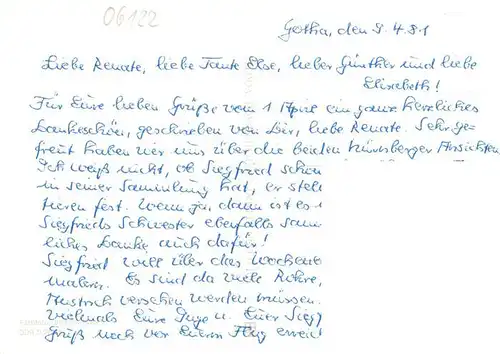 06122
Gotha, den 8.4.81
Liebe Renate, liebe Tante Else, lieber Günther und liebe
Elisabeth!
Für Eure lieben Grüße vom 1 April ein ganz herzliches
Dankeschön, geschrieben von Dir, liebe Renate. Sehr ge-
freut haben wir uns über die beiden Nürnberger Ansichten
Ich weiß nicht, ob Siegfried schon
in seiner Sammlung hat, er stell
tieren fest. Wenn ja, dann ist es
Siegfrieds Schwester ebenfalls sam
liches Danke auch dafür!
Siegfried will über das Wochene
malern. Es sind da viele Rohre,
Anstrich versehen werden müssen.
vielmals Eure Inge u. Euer Sieg
Gruß noch vor Eurem Flug errei